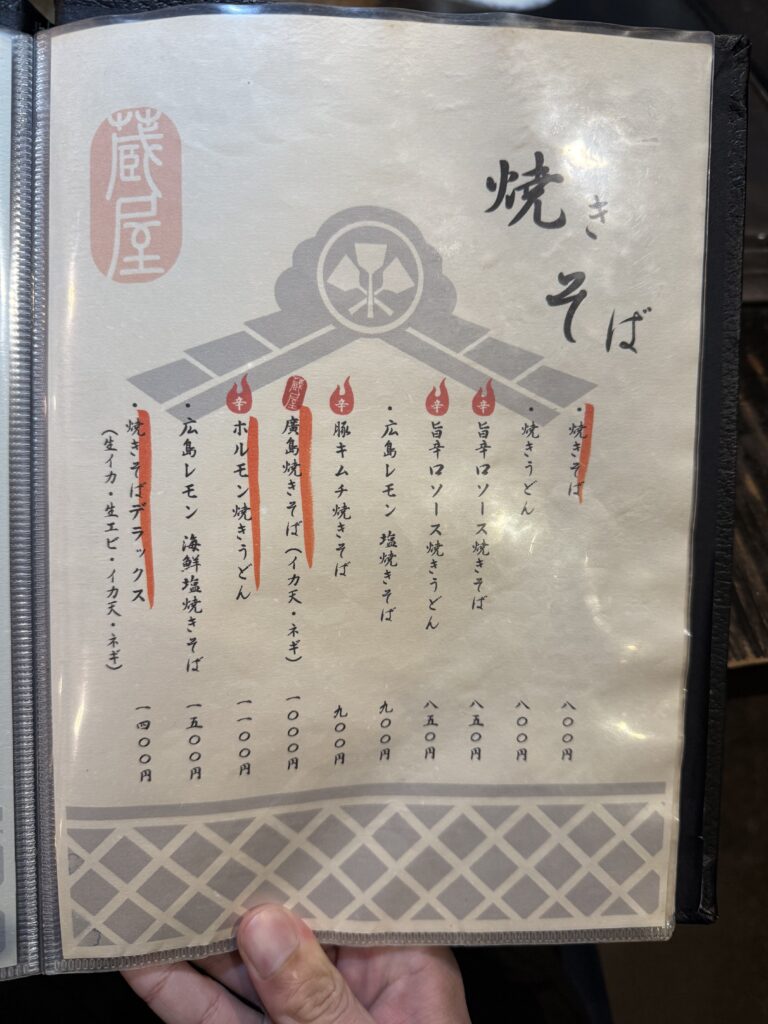 焼きそば
・焼きそば 八〇〇円
・焼きうどん 八〇〇円
辛 旨辛口ソース焼きそば 八五〇円
辛 旨辛口ソース焼きうどん 八五〇円
・広島レモン 塩焼きそば 九〇〇円
辛 豚キムチ焼きそば 九〇〇円
蔵屋 廣島焼きそば(イカ天・ネギ) 一〇〇〇円
辛 ホルモン焼きうどん 一一〇〇円
・広島レモン 海鮮塩焼きそば 一五〇〇円
・焼きそばデラックス 一四〇〇円
(生イカ・生エビ・イカ天・ネギ)
蔵屋